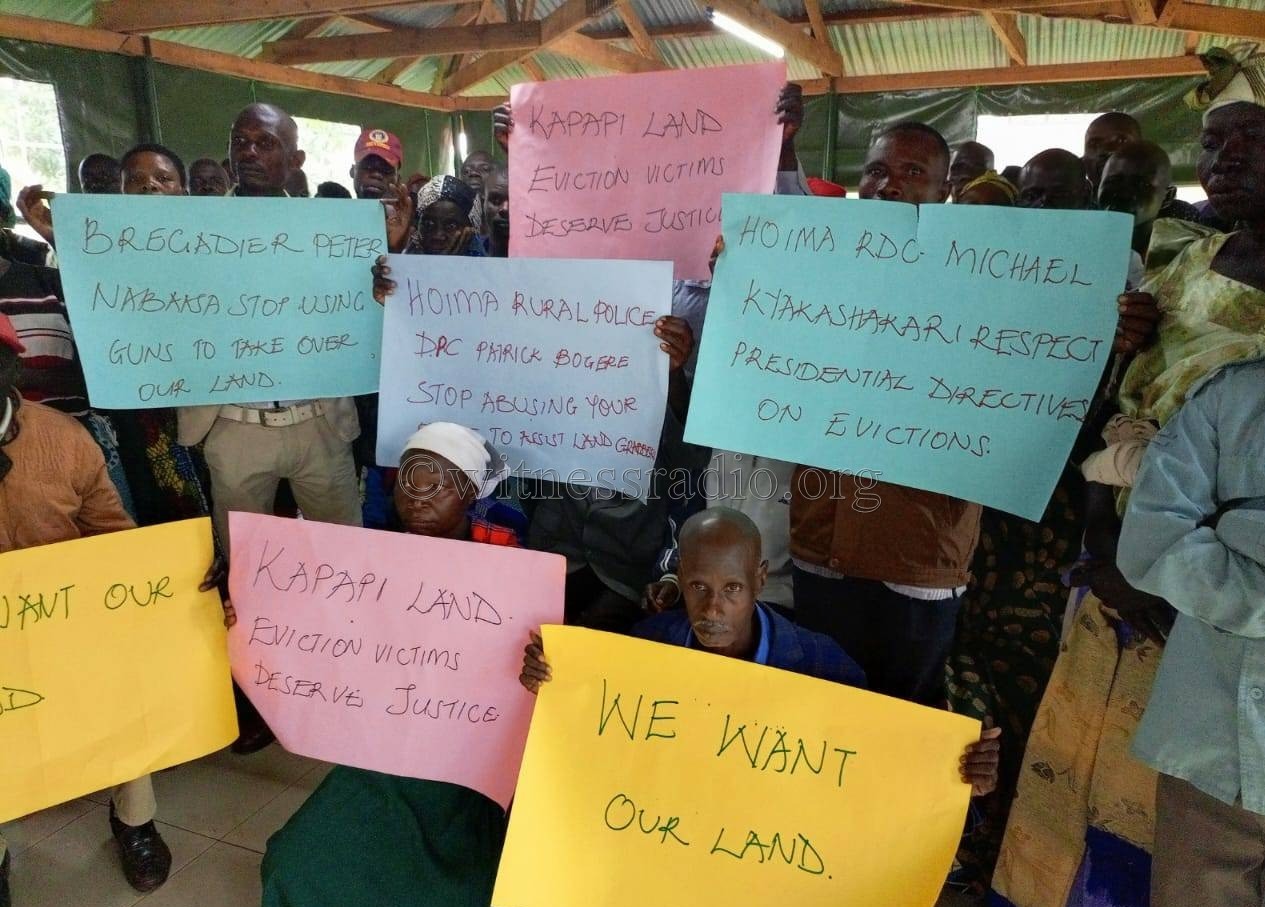 KAPAPI LAND
EVICTION VICTIMS
DESERVE JUSTICE
BREGADIER PETER
NABAASA STOP USING
GUNS TO TAKE OVER
OUR LAND.
HOIMA RURAL POLICE
DPC PATRICK BOGERE
STOP ABUSING YOUR
TO ASSIST LAND GRABBERS
HOIMA RDC- MICHAEL
KYAKASHAKARI RESPECT
PRESIDENTIAL DIRECTIVES
ON EVICTIONS.
©witnessradio.org
WANT OUR
KAPAPI LAND.
EVICTION VICTIMS
DESERVE JUSTICE
WE WANT
OUR LAND.